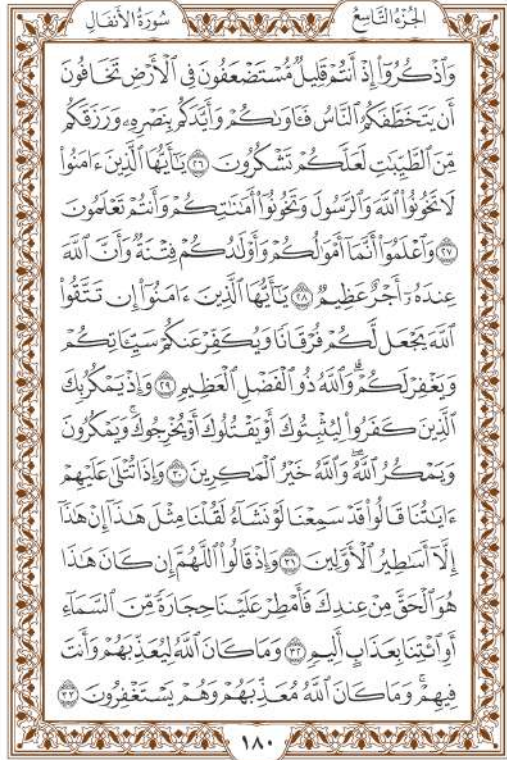 الجُزْءُ التَّاسِعُ سُورَةُ الأَنفَالِ
وَٱذْكُرُوٓا۟ إِذْ أَنتُمْ قَلِيلٌ مُّسْتَضْعَفُونَ فِى ٱلْأَرْضِ تَخَافُونَ
أَن يَتَخَطَّفَكُمُ ٱلنَّاسُ فَـَٔاوَىٰكُمْ وَأَيَّدَكُم بِنَصْرِهِۦ وَرَزَقَكُم
مِّنَ ٱلطَّيِّبَـٰتِ لَعَلَّكُمْ تَشْكُرُونَ ٢٦ يَـٰٓأَيُّهَا ٱلَّذِينَ ءَامَنُوا۟
لَا تَخُونُوا۟ ٱللَّهَ وَٱلرَّسُولَ وَتَخُونُوٓا۟ أَمَـٰنَـٰتِكُمْ وَأَنتُمْ تَعْلَمُونَ
٢٧ وَٱعْلَمُوٓا۟ أَنَّمَآ أَمْوَٰلُكُمْ وَأَوْلَـٰدُكُمْ فِتْنَةٌ وَأَنَّ ٱللَّهَ
عِندَهُۥٓ أَجْرٌ عَظِيمٌ ٢٨ يَـٰٓأَيُّهَا ٱلَّذِينَ ءَامَنُوٓا۟ إِن تَتَّقُوا۟
ٱللَّهَ يَجْعَل لَّكُمْ فُرْقَانًا وَيُكَفِّرْ عَنكُمْ سَيِّـَٔاتِكُمْ
وَيَغْفِرْ لَكُمْ ۗ وَٱللَّهُ ذُو ٱلْفَضْلِ ٱلْعَظِيمِ ٢٩ وَإِذْ يَمْكُرُ بِكَ
ٱلَّذِينَ كَفَرُوا۟ لِيُثْبِتُوكَ أَوْ يَقْتُلُوكَ أَوْ يُخْرِجُوكَ ۚ وَيَمْكُرُونَ
وَيَمْكُرُ ٱللَّهُ ۖ وَٱللَّهُ خَيْرُ ٱلْمَـٰكِرِينَ ٣٠ وَإِذَا تُتْلَىٰ عَلَيْهِمْ
ءَايَـٰتُنَا قَالُوا۟ قَدْ سَمِعْنَا لَوْ نَشَآءُ لَقُلْنَا مِثْلَ هَـٰذَآ ۙ إِنْ هَـٰذَآ
إِلَّآ أَسَـٰطِيرُ ٱلْأَوَّلِينَ ٣١ وَإِذْ قَالُوا۟ ٱللَّهُمَّ إِن كَانَ هَـٰذَا
هُوَ ٱلْحَقَّ مِنْ عِندِكَ فَأَمْطِرْ عَلَيْنَا حِجَارَةً مِّنَ ٱلسَّمَآءِ
أَوِ ٱئْتِنَا بِعَذَابٍ أَلِيمٍ ٣٢ وَمَا كَانَ ٱللَّهُ لِيُعَذِّبَهُمْ وَأَنتَ
فِيهِمْ ۚ وَمَا كَانَ ٱللَّهُ مُعَذِّبَهُمْ وَهُمْ يَسْتَغْفِرُونَ ٣٣
١٨٠